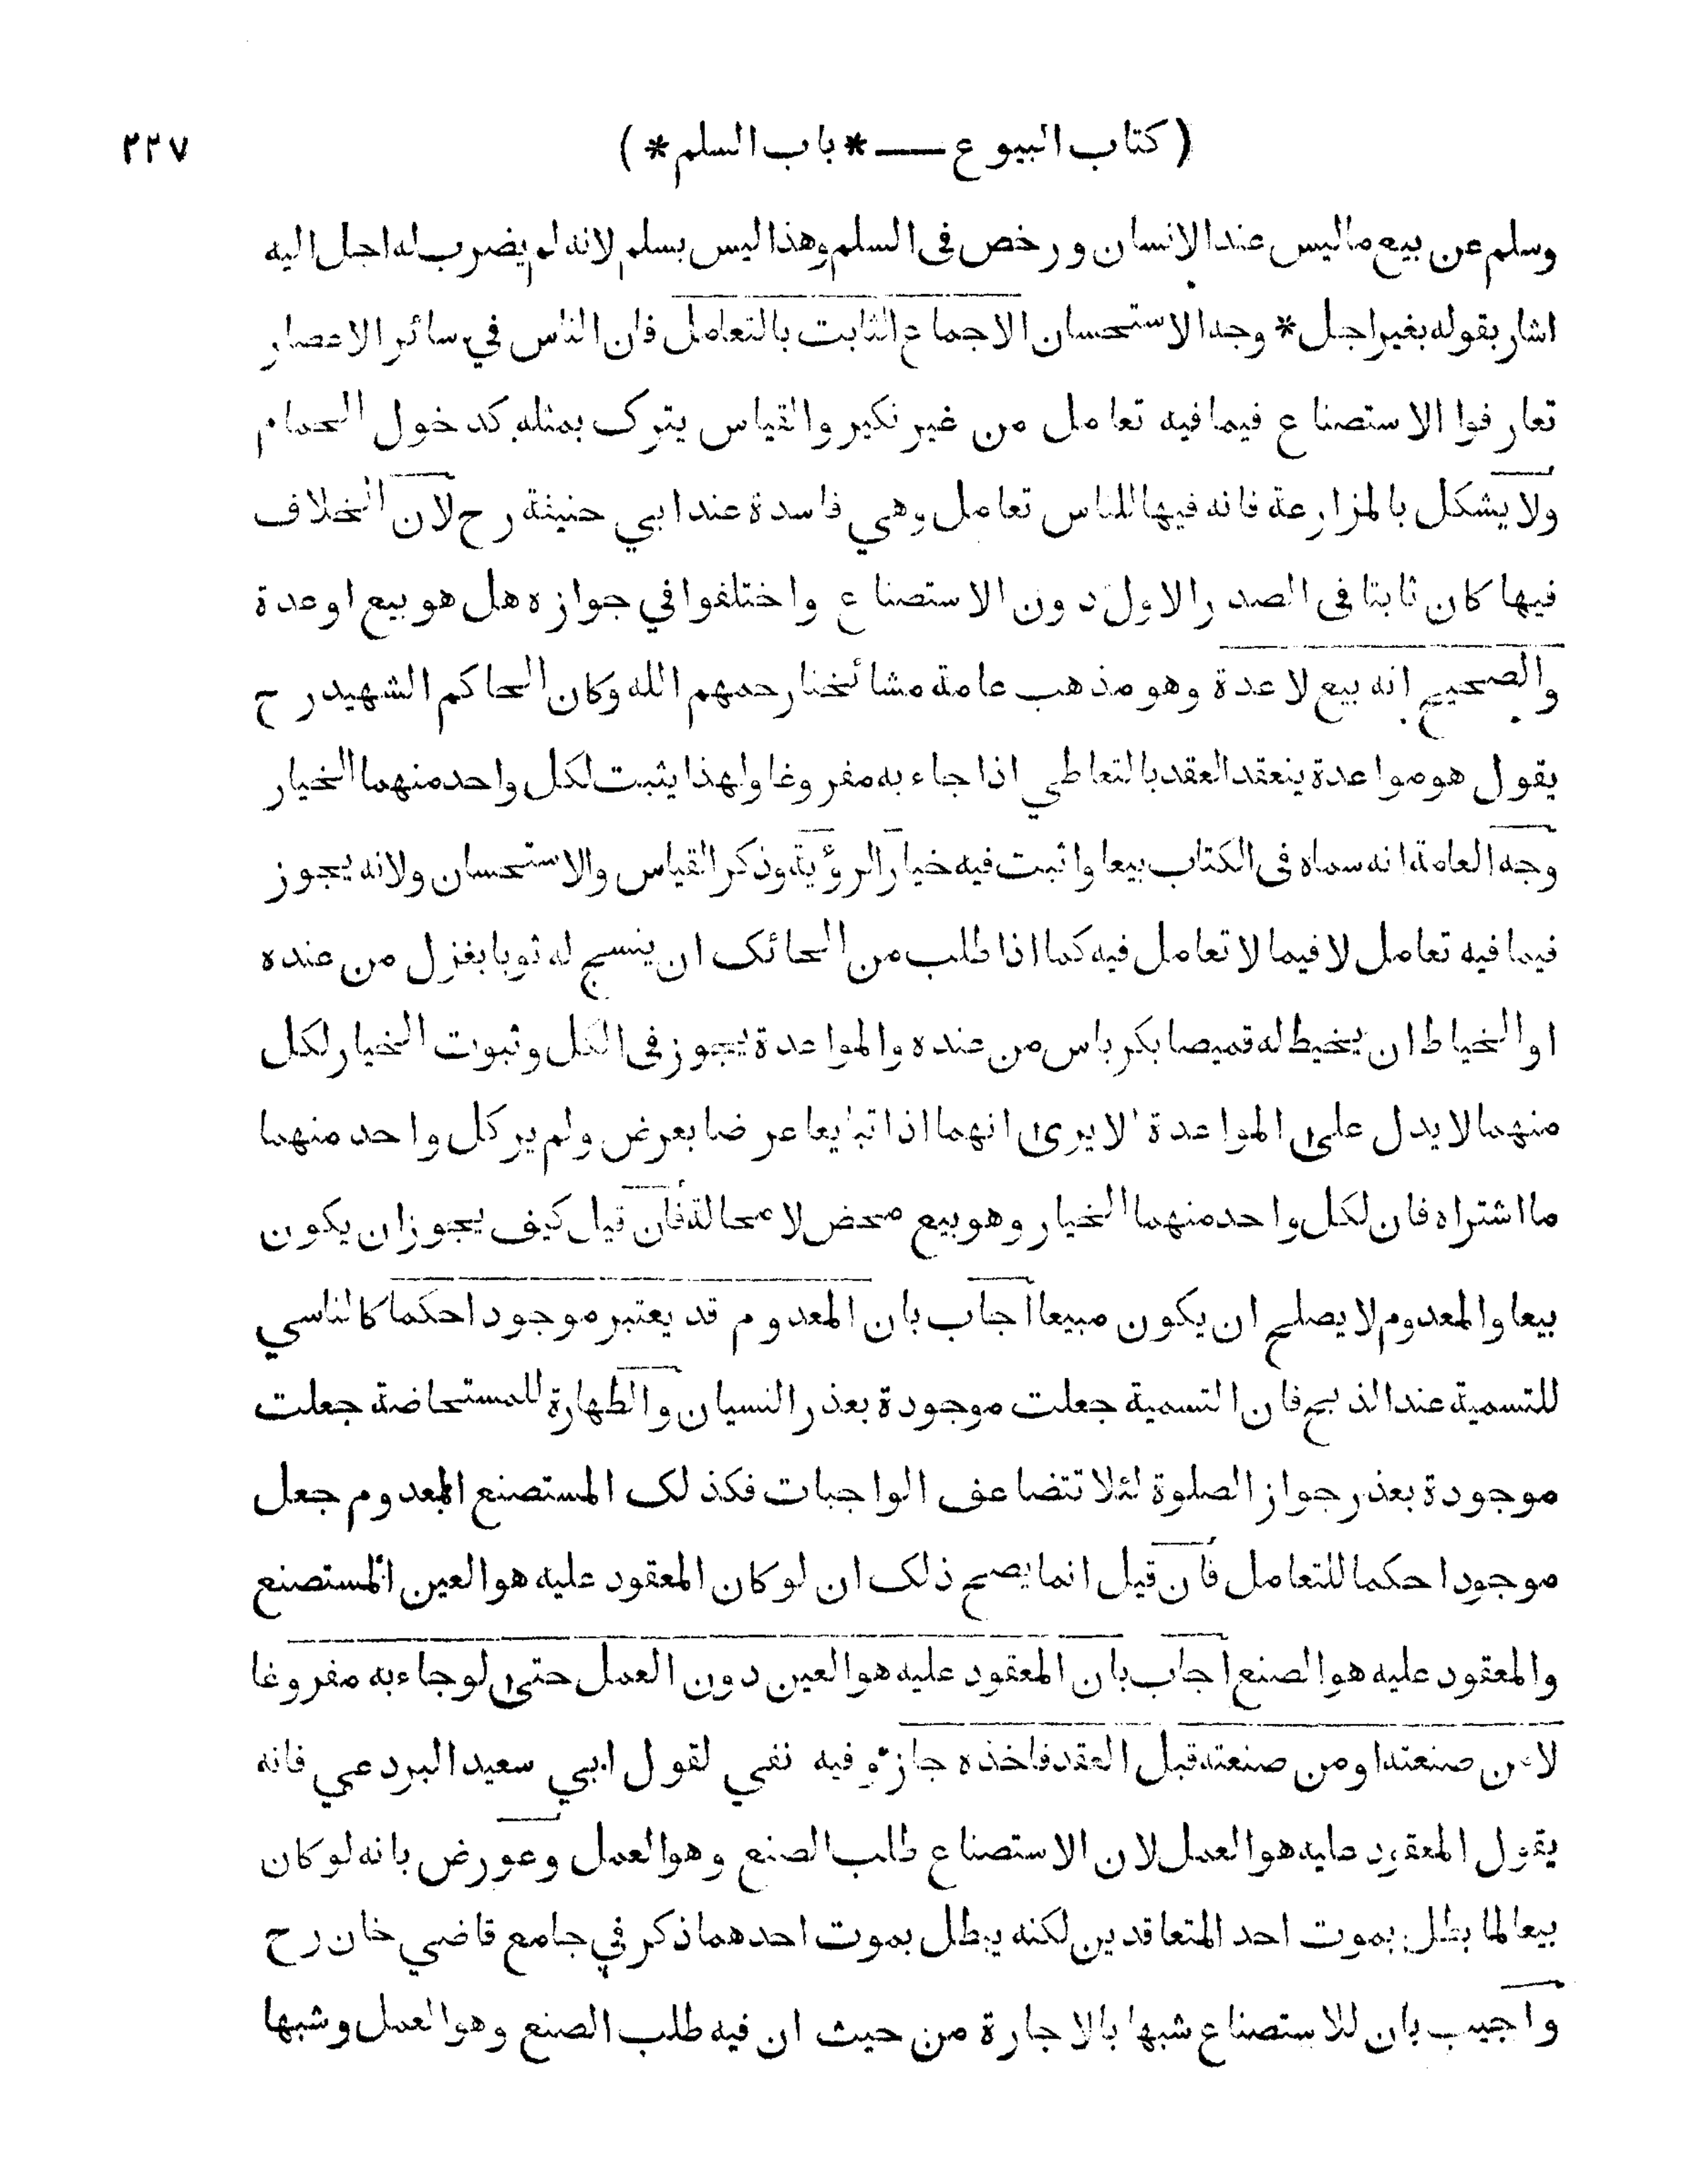 ( كتاب البيوع ــــ * باب السلم * ) ٢٢٧
وسلم عن بيع ما ليس عند الانسان ورخص فى السلم وهذا ليس بسلم لانه لم يضرب له اجل اليه
اشار بقوله بغير اجل * وجه الاستحسان الاجماع الثابت بالتعامل فان الناس في سائر الاعصار
تعارفوا الاستصناع فيما فيه تعامل من غير نكير والقياس يترك بمثله كدخول الحمام
ولا يشكل بالمزارعة فانه فيها للناس تعامل وهي فاسدة عند ابي حنيفة رح لان الخلاف
فيها كان ثابتا فى الصدر الاول دون الاستصناع واختلفوا في جوازه هل هو بيع او عدة
والصحيح انه بيع لا عدة وهو مذهب عامة مشائخنا رحمهم الله وكان الحاكم الشهيد رح
يقول هو مواعدة ينعقد العقد بالتعاطي اذا جاء به مفروغا ولهذا يثبت لكل واحد منهما الخيار
وجه العامة انه سماه فى الكتاب بيعا واثبت فيه خيار الرؤية وذكر القياس والاستحسان ولانه يجوز
فيما فيه تعامل لا فيما لا تعامل فيه كما اذا طلب من الحائك ان ينسج له ثوبا بغزل من عنده
او الخياط ان يخيط له قميصا بكرباس من عنده والمواعدة يجوز فى الكل وثبوت الخيار لكل
منهما لا يدل على المواعدة الا يرى انهما اذا تبايعا عرضا بعرض ولم ير كل واحد منهما
ما اشتراه فان لكل واحد منهما الخيار وهو بيع محض لا محالة فان قيل كيف يجوز ان يكون
بيعا والمعدوم لا يصلح ان يكون مبيعا اجاب بان المعدوم قد يعتبر موجودا حكما كالناسي
للتسمية عند الذبح فان التسمية جعلت موجودة بعذر النسيان والطهارة للمستحاضة جعلت
موجودة بعذر جواز الصلوة لئلا تتضاعف الواجبات فكذلك المستصنع المعدوم جعل
موجودا حكما للتعامل فان قيل انما يصح ذلك ان لو كان المعقود عليه هو العين المستصنع
والمعقود عليه هو الصنع اجاب بان المعقود عليه هو العين دون العمل حتى لو جاء به مفروغا
لا من صنعته او من صنعته قبل العقد فاخذه جاز وفيه نفي لقول ابي سعيد البردعي فانه
يقول المعقود عليه هو العمل لان الاستصناع طلب الصنع وهو العمل وعورض بانه لو كان
بيعا لما بطل بموت احد المتعاقدين لكنه يبطل بموت احدهما ذكر في جامع قاضي خان رح
واجيب بان للاستصناع شبها بالاجارة من حيث ان فيه طلب الصنع وهو العمل وشبها